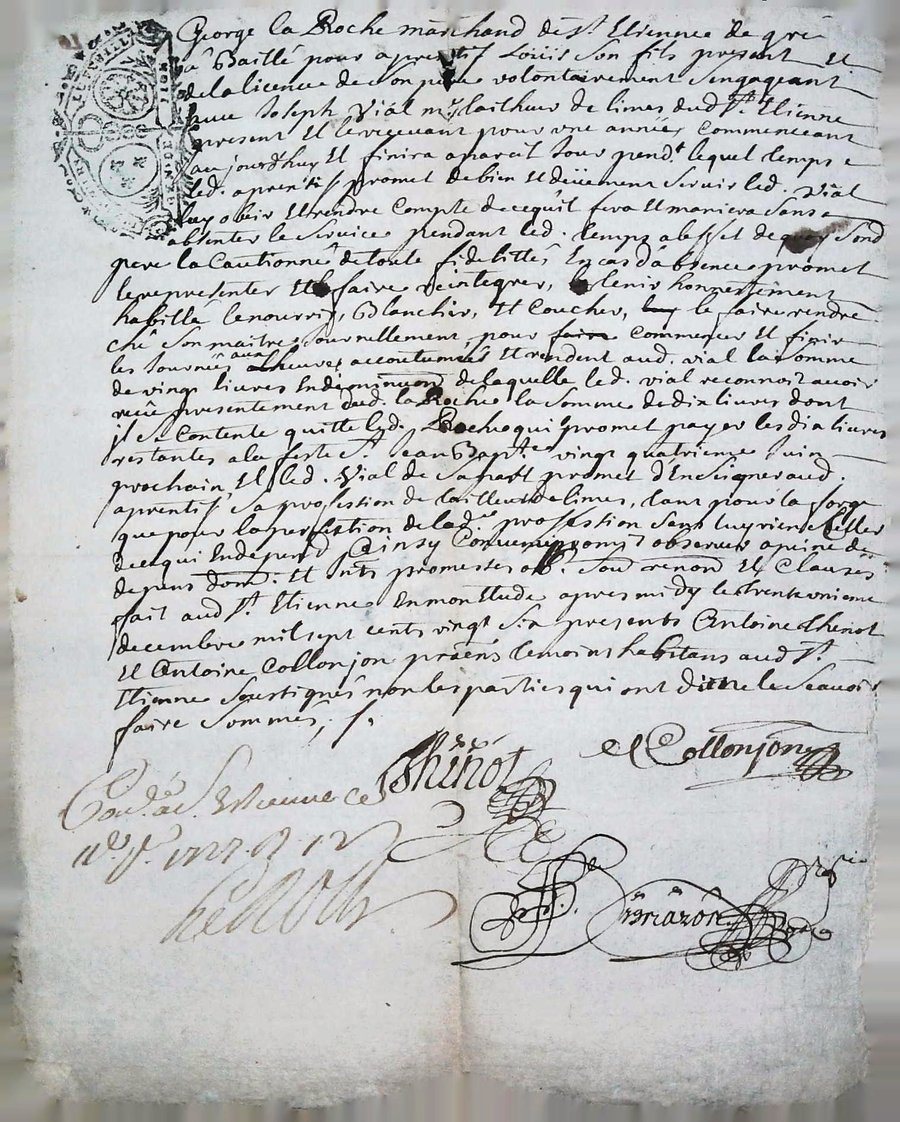 George la Roche marchand de St. Etienne de gré
a Baillé pour aprentif Louis son fils present Et
de la licence de son pere volontairement s'engageant
avec Joseph Vial mr. tailheur de limes dud. St. Etienne
present Et le recevant pour une année, Commenceant
aujourd'huy Et finira a pareil Jour pendt. lequel temps
led. aprentif promet de bien Et deüement Servir led. Vial
luy obeir Et rendre Compte de ce quil fera Et maniera Sans
absenter le Service pendant led. temps a l'effet de quoy Sond
pere la Cautionné de toute fidelitté, En cas d'absence promet
le representer Et faire reintegrer, le tenir honnestement
habillé le nourrir, Blanchir, Et Coucher, le faire rendre
ché Son maitre Journellement, pour Commencer Et finir
les Journées aux heures accoutumées Et rendent aud. vial la somme
de vingt livres de laquelle led. vial reconnoit avoir
receu presentement dud. la Roche la Somme de dix livres dont
il Se Contente quitte led. Roche qui promet payer les dix livres
restantes a la feste St. Jean Bapte. vingt quatrieme Juin
prochain, Et led. Vial de Sa part promet d'Enseigner aud.
aprentif Sa profession de tailleur de limes, tant pour la forge
que pour la perfection de lad. profession Sans luy rien Celler
de ce qui En depend Ainsy Convenu promis observer a peine de
depens dom. Et ints. promesses obt. Sou. renon. Et Clauses
fait aud. St. Etienne En mon Etude apres midy le trente unieme
decembre mil sept cents vingt Six presents Antoine Thenot
Et Antoine Collonjon praens. temoins habitans aud. St.
Etienne Soussignés non les parties qui ont dit ne le Scavoir
faire Sommés, /.
Thenot
Collonjon
Con. a St. Etienne ce
1727
Briazon